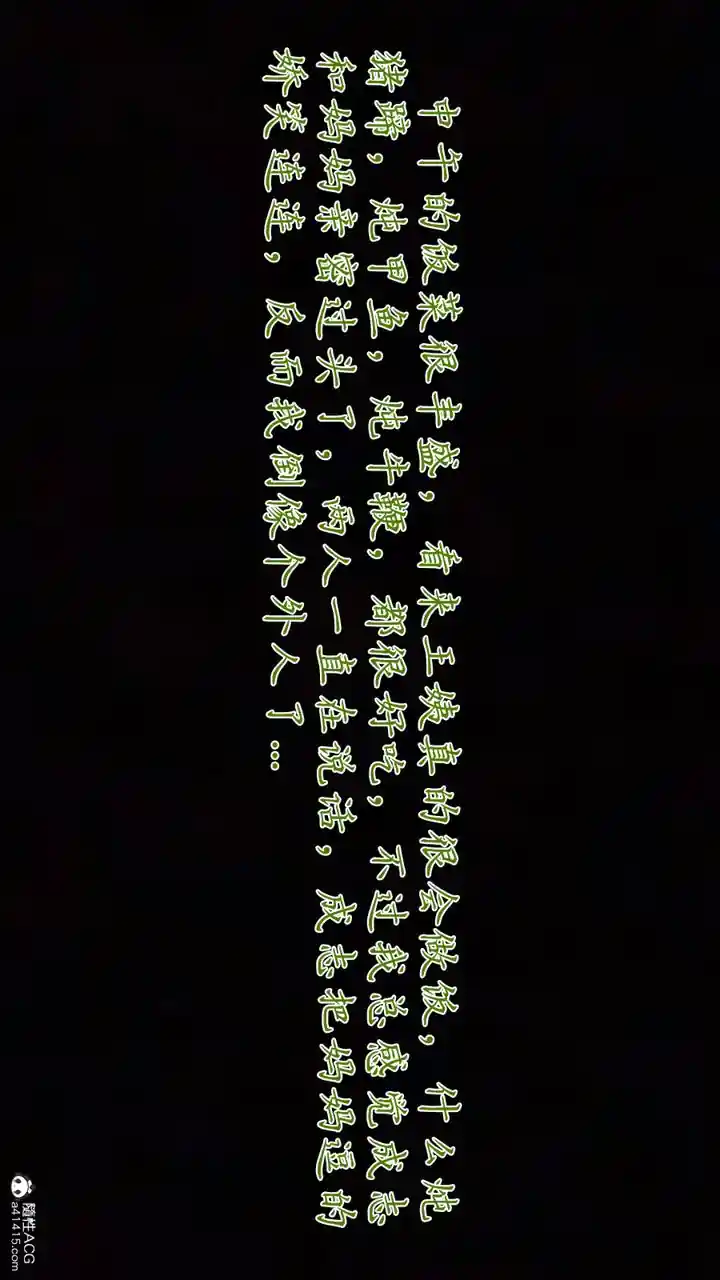 中午的饭菜很丰盛，看来王姨真的很会做饭，什么炖
猪蹄，炖甲鱼，炖牛鞭，都很好吃，不过我总感觉成志
和妈妈亲密过头了，两人一直在说话，成志把妈妈逗的
娇笑连连，反而我倒像个外人了…
隨性ACG
a41415.com